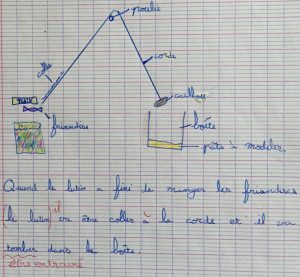 poulie
colle
corde
caillou
friandise
boîte
pâte à modeler
Quand le lutin a fini de manger les friandises
(le lutin) il va être coller à la corde et il va
tomber dans la boîte.
être entrainé